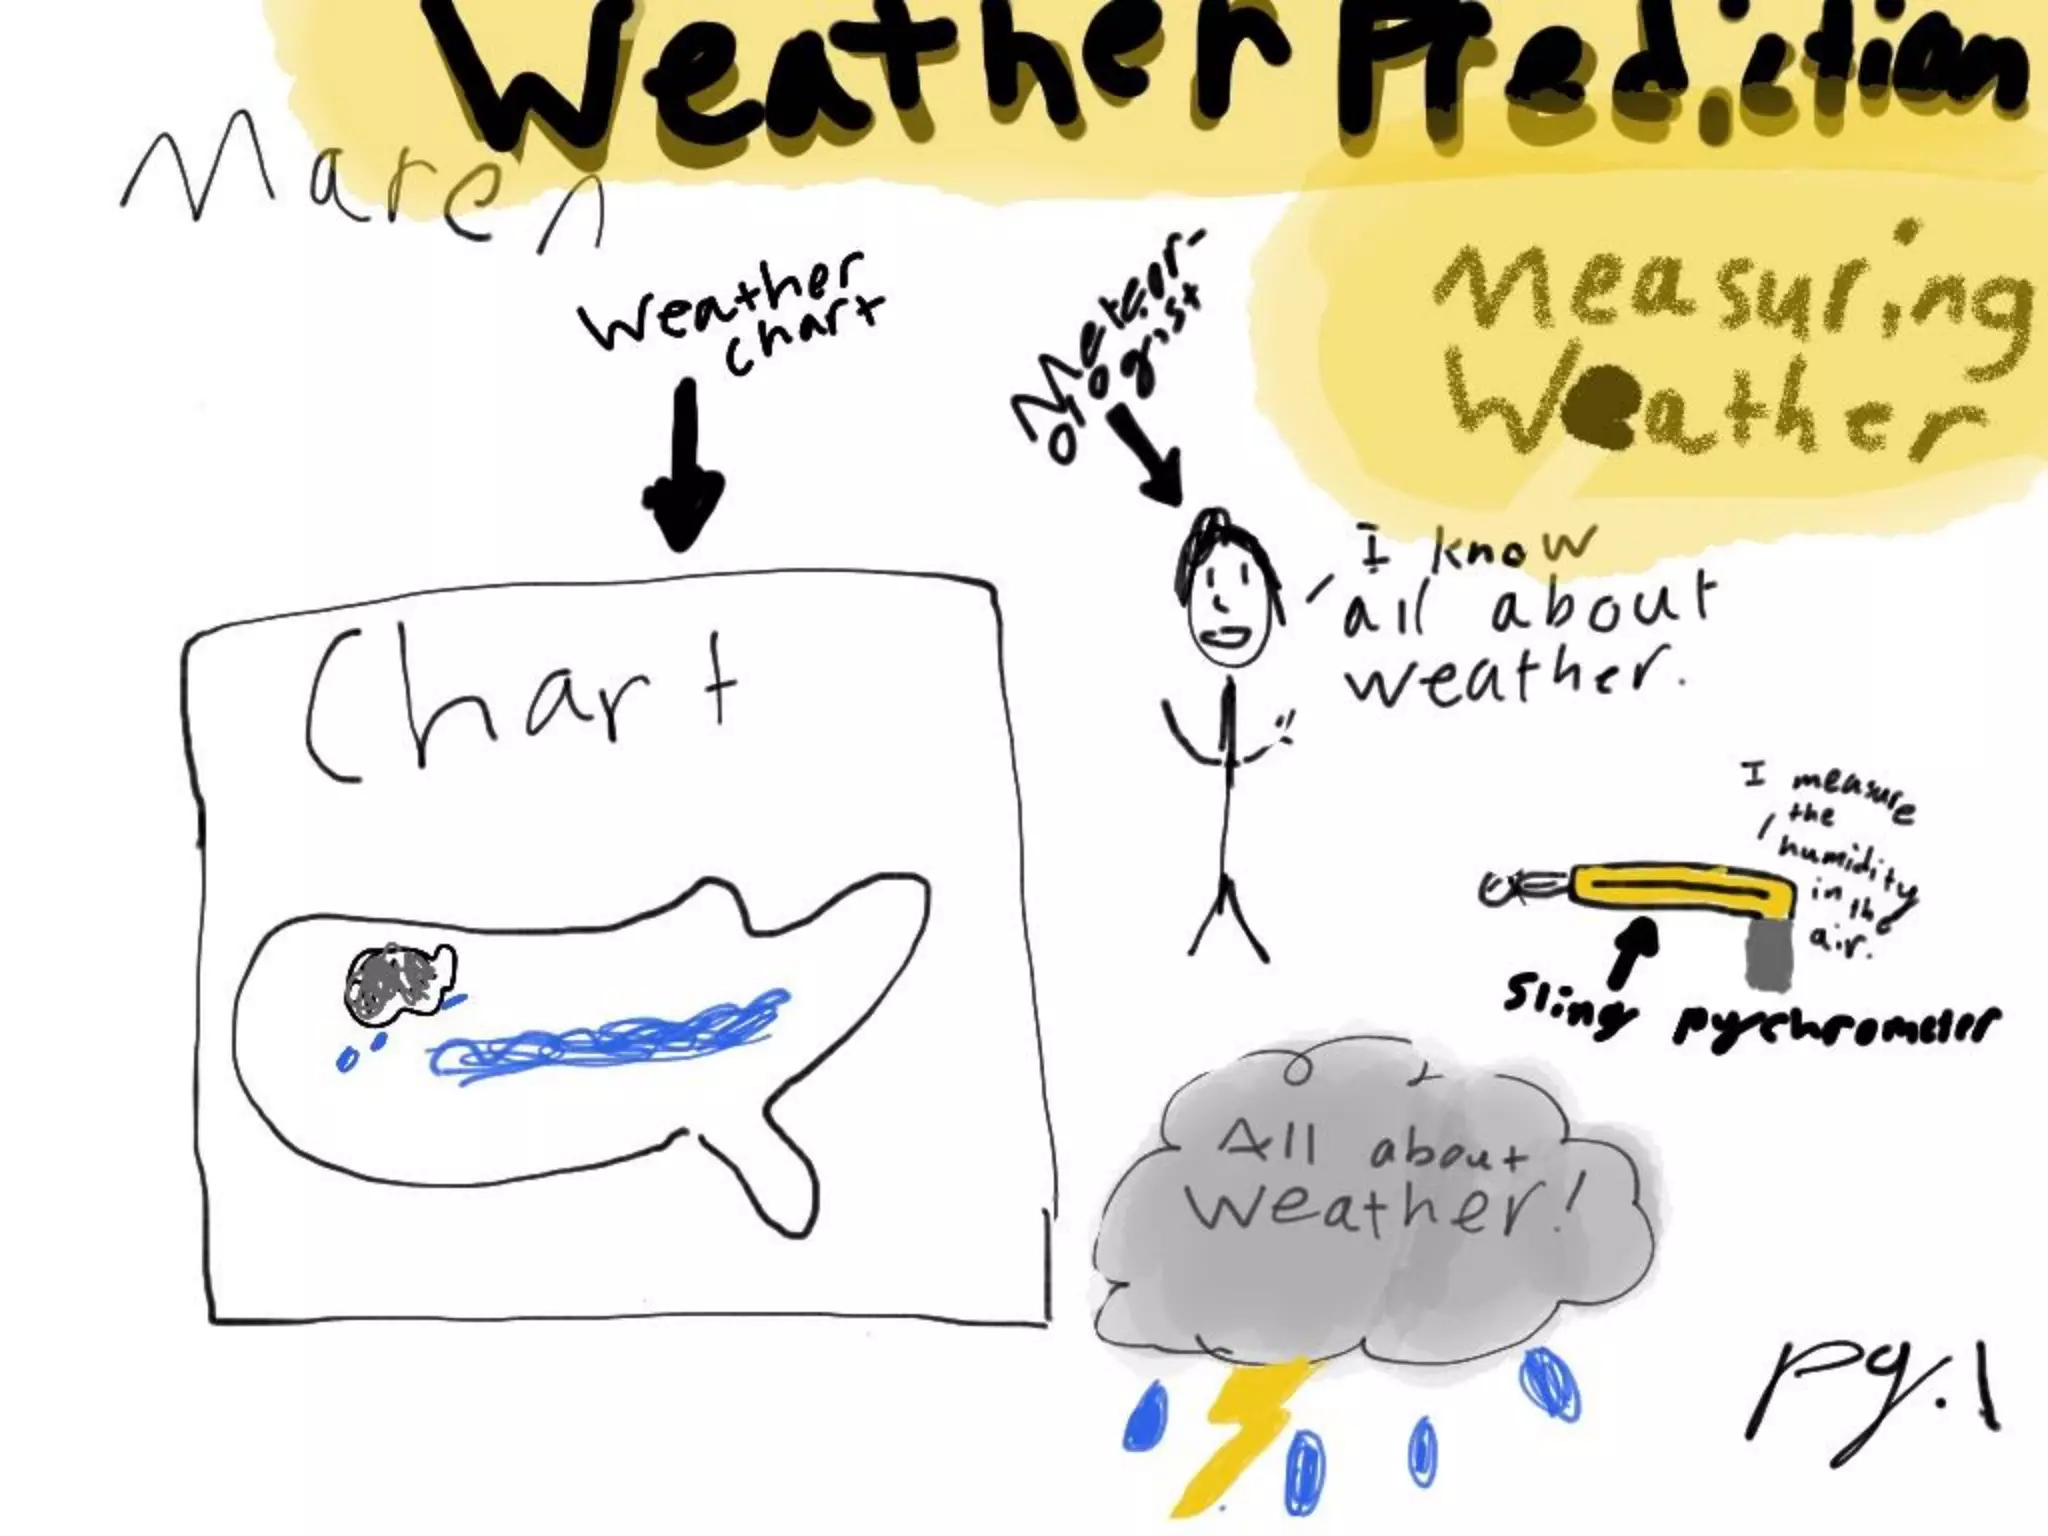 Weather Prediction
Maren
Measuring
Weather
Weather
chart
Meteor-
ologist
I know
all about
weather.
Chart
I measure
the
humidity
in th
air.
Sling pychrometer
All about
Weather!
pg.1